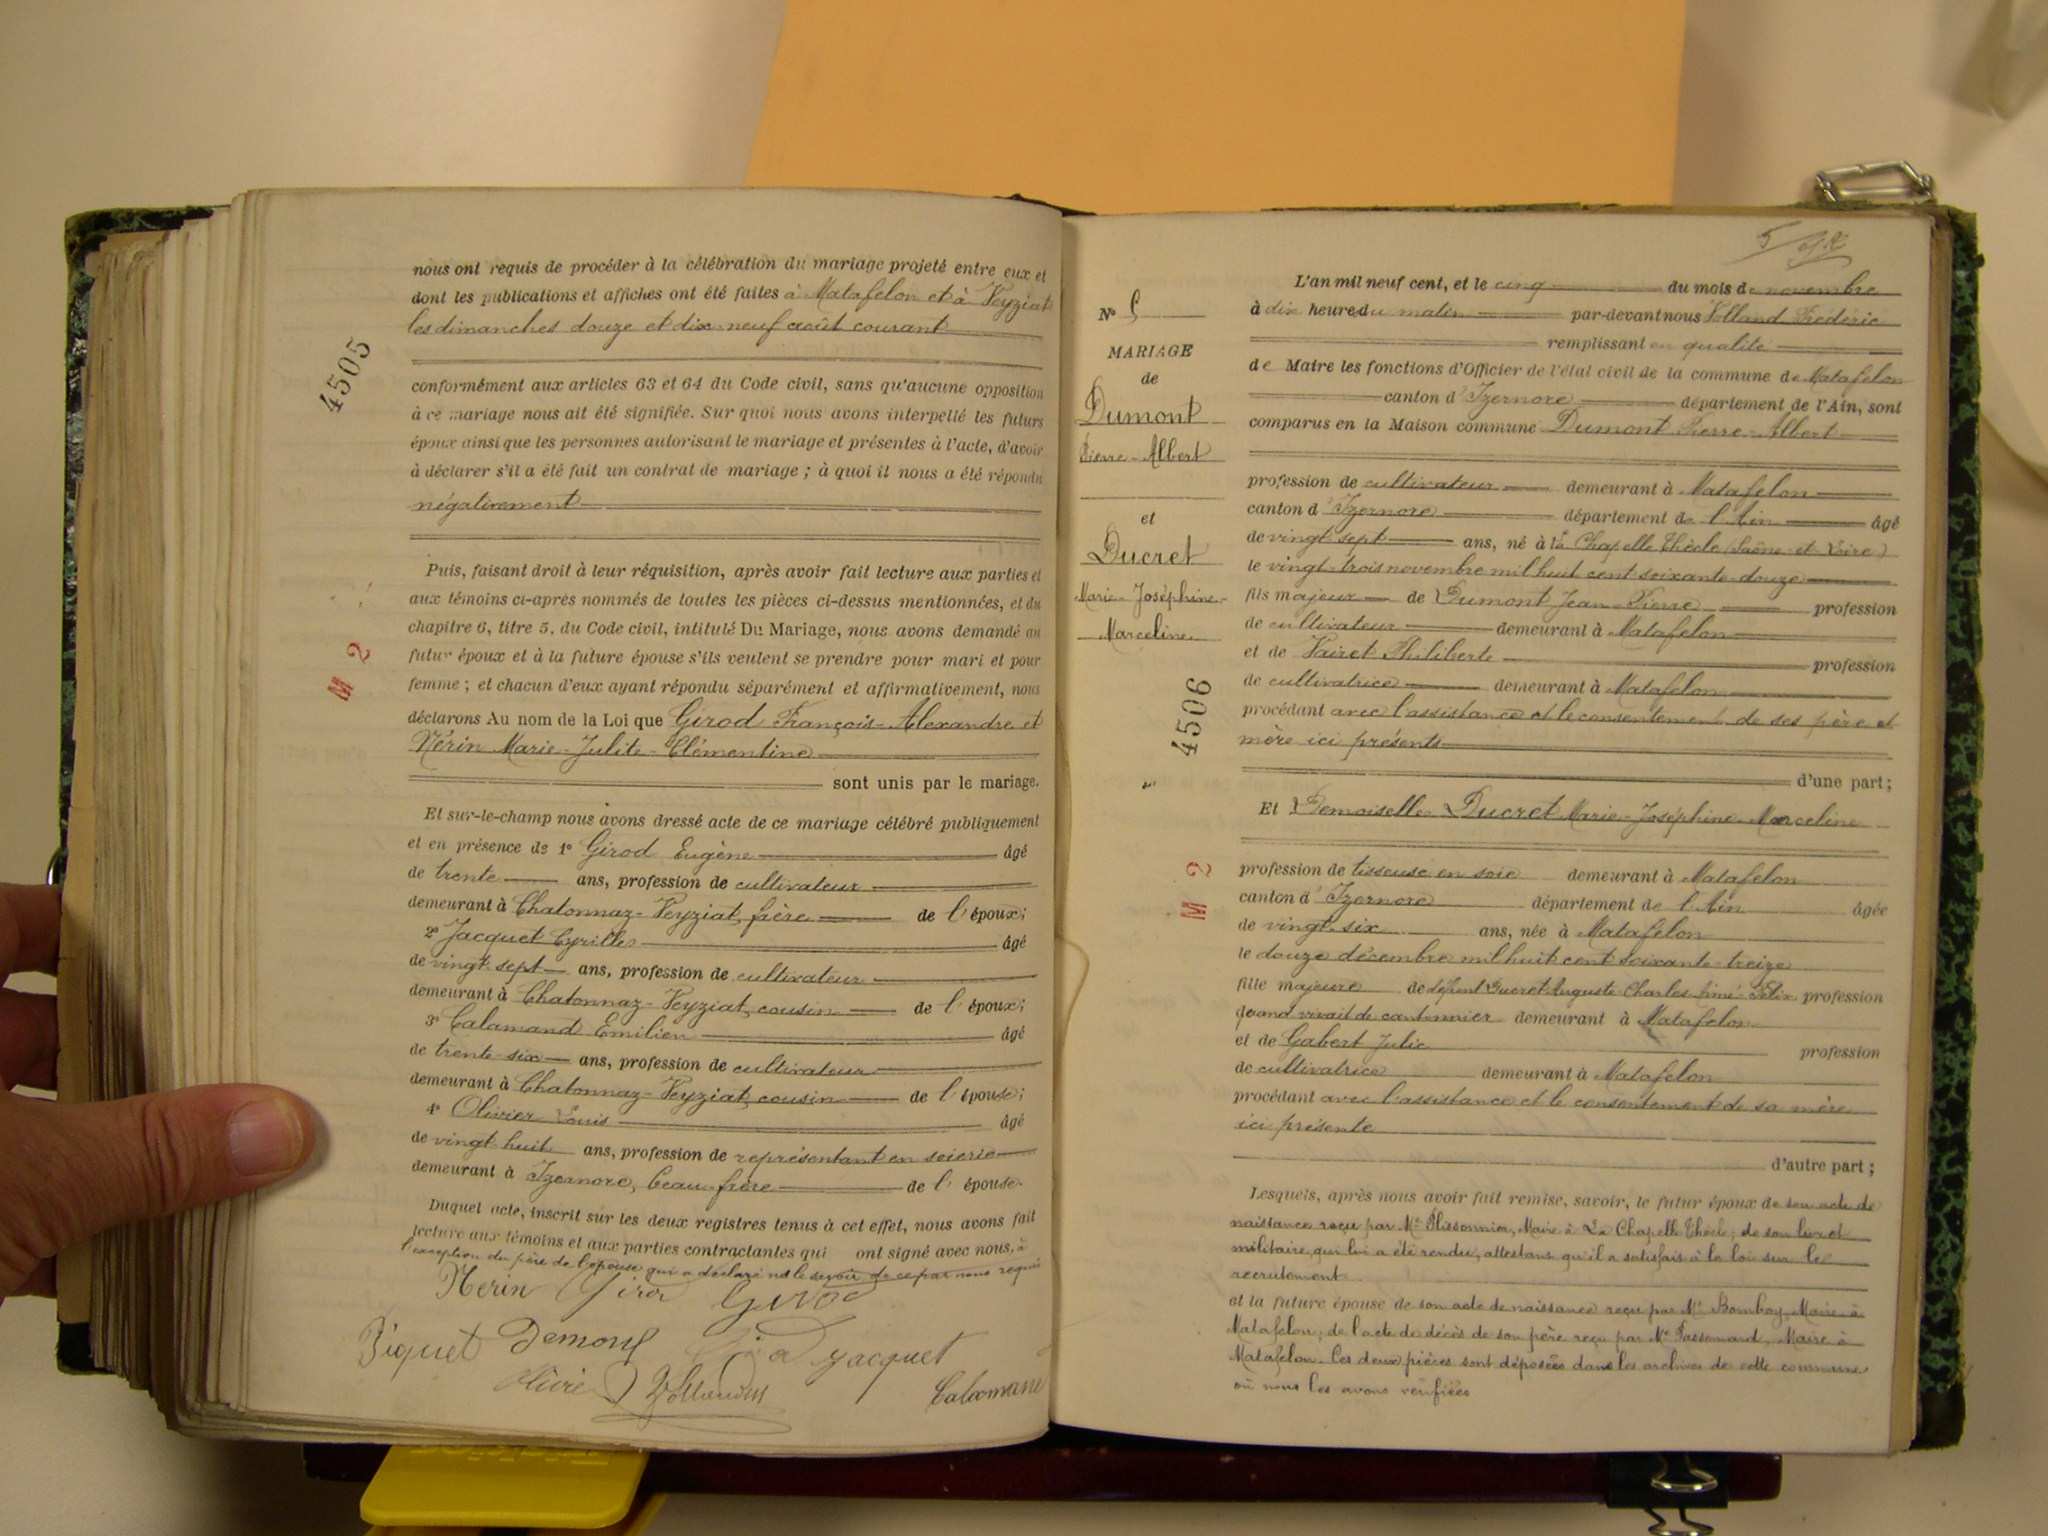 nous ont requis de procéder à la célébration du mariage projeté entre eux et
dont les publications et affiches ont été faites à Matafelon et à Veyziat
les dimanches douze et dix-neuf août courant
4505
conformément aux articles 63 et 64 du Code civil, sans qu'aucune opposition
à ce mariage nous ait été signifiée. Sur quoi nous avons interpellé les futurs
époux ainsi que les personnes autorisant le mariage et présentes à l'acte, d'avoir
à déclarer s'il a été fait un contrat de mariage ; à quoi il nous a été répondu
négativement
Puis, faisant droit à leur réquisition, après avoir fait lecture aux parties et
aux témoins ci-après nommés de toutes les pièces ci-dessus mentionnées, et du
chapitre 6, titre 5, du Code civil, intitulé Du Mariage, nous avons demandé au
futur époux et à la future épouse s'ils veulent se prendre pour mari et pour
M 2
femme ; et chacun d'eux ayant répondu séparément et affirmativement, nous
déclarons Au nom de la Loi que Girod François-Alexandre et
Nérin Marie-Julite-Clémentine
sont unis par le mariage.
Et sur-le-champ nous avons dressé acte de ce mariage célébré publiquement
et en présence de 1º Girod Eugène âgé
de trente ans, profession de cultivateur
demeurant à Chatonnaz-Veyziat, frère de l'époux;
2º Jacquet Cyrille âgé
de vingt-sept ans, profession de cultivateur
demeurant à Chatonnaz-Veyziat, cousin de l'époux;
3º Calamand Emilien âgé
de trente-six ans, profession de cultivateur
demeurant à Chatonnaz-Veyziat, cousin de l'épouse;
4º Olivier Louis âgé
de vingt-huit ans, profession de représentant en soierie
demeurant à Izernore, beau-frère de l'épouse.
Duquel acte, inscrit sur les deux registres tenus à cet effet, nous avons fait
lecture aux témoins et aux parties contractantes qui ont signé avec nous, à
l'exception du père de l'épouse qui a déclaré ne le savoir de ce par nous requis
Nerin Girod Girod
Piquet Demont Jacquet
Olivier Vollandu Calamand
5
L'an mil neuf cent, et le cinq du mois de novembre
Nº
à dix heures du matin par-devant nous Volland Frédéric
remplissant en qualité
MARIAGE
de Maire les fonctions d'Officier de l'état civil de la commune de Matafelon
de
canton d'Izernore département de l'Ain, sont
Dumont
comparus en la Maison commune Dumont Pierre-Albert
Pierre-Albert
profession de cultivateur demeurant à Matafelon
canton d'Izernore département de l'Ain âgé
et
de vingt-sept ans, né à la Chapelle Thècle (Saône-et-Loire)
Ducret
le vingt-trois novembre mil huit cent soixante-douze
Marie-Joséphine-
fils majeur de Dumont Jean-Pierre profession
Marceline
de cultivateur demeurant à Matafelon
et de Vairet Philiberte profession
de cultivatrice demeurant à Matafelon
4506
procédant avec l'assistance et le consentement de ses père et
mère ici présents
d'une part;
Et Demoiselle Ducret Marie-Joséphine-Marceline
M 2
profession de tisseuse en soie demeurant à Matafelon
canton d'Izernore département de l'Ain âgée
de vingt-six ans, née à Matafelon
le douze décembre mil huit cent soixante-treize
fille majeure de défunt Ducret Auguste-Charles-Aimé-Félix profession
quand vivait de cantonnier demeurant à Matafelon
et de Gabert Julie profession
de cultivatrice demeurant à Matafelon
procédant avec l'assistance et le consentement de sa mère
ici présente
d'autre part;
Lesquels, après nous avoir fait remise, savoir, le futur époux de son acte de
naissance reçu par Mr Plissonnier, Maire à La Chapelle Thècle; de son livret
militaire, qui lui a été rendu, attestant qu'il a satisfait à la loi sur le
recrutement.
et la future épouse de son acte de naissance reçu par Mr Bomboy, Maire à
Matafelon; de l'acte de décès de son père reçu par Mr Passemard, Maire à
Matafelon. Ces deux pièces sont déposées dans les archives de cette commune
où nous les avons vérifiées